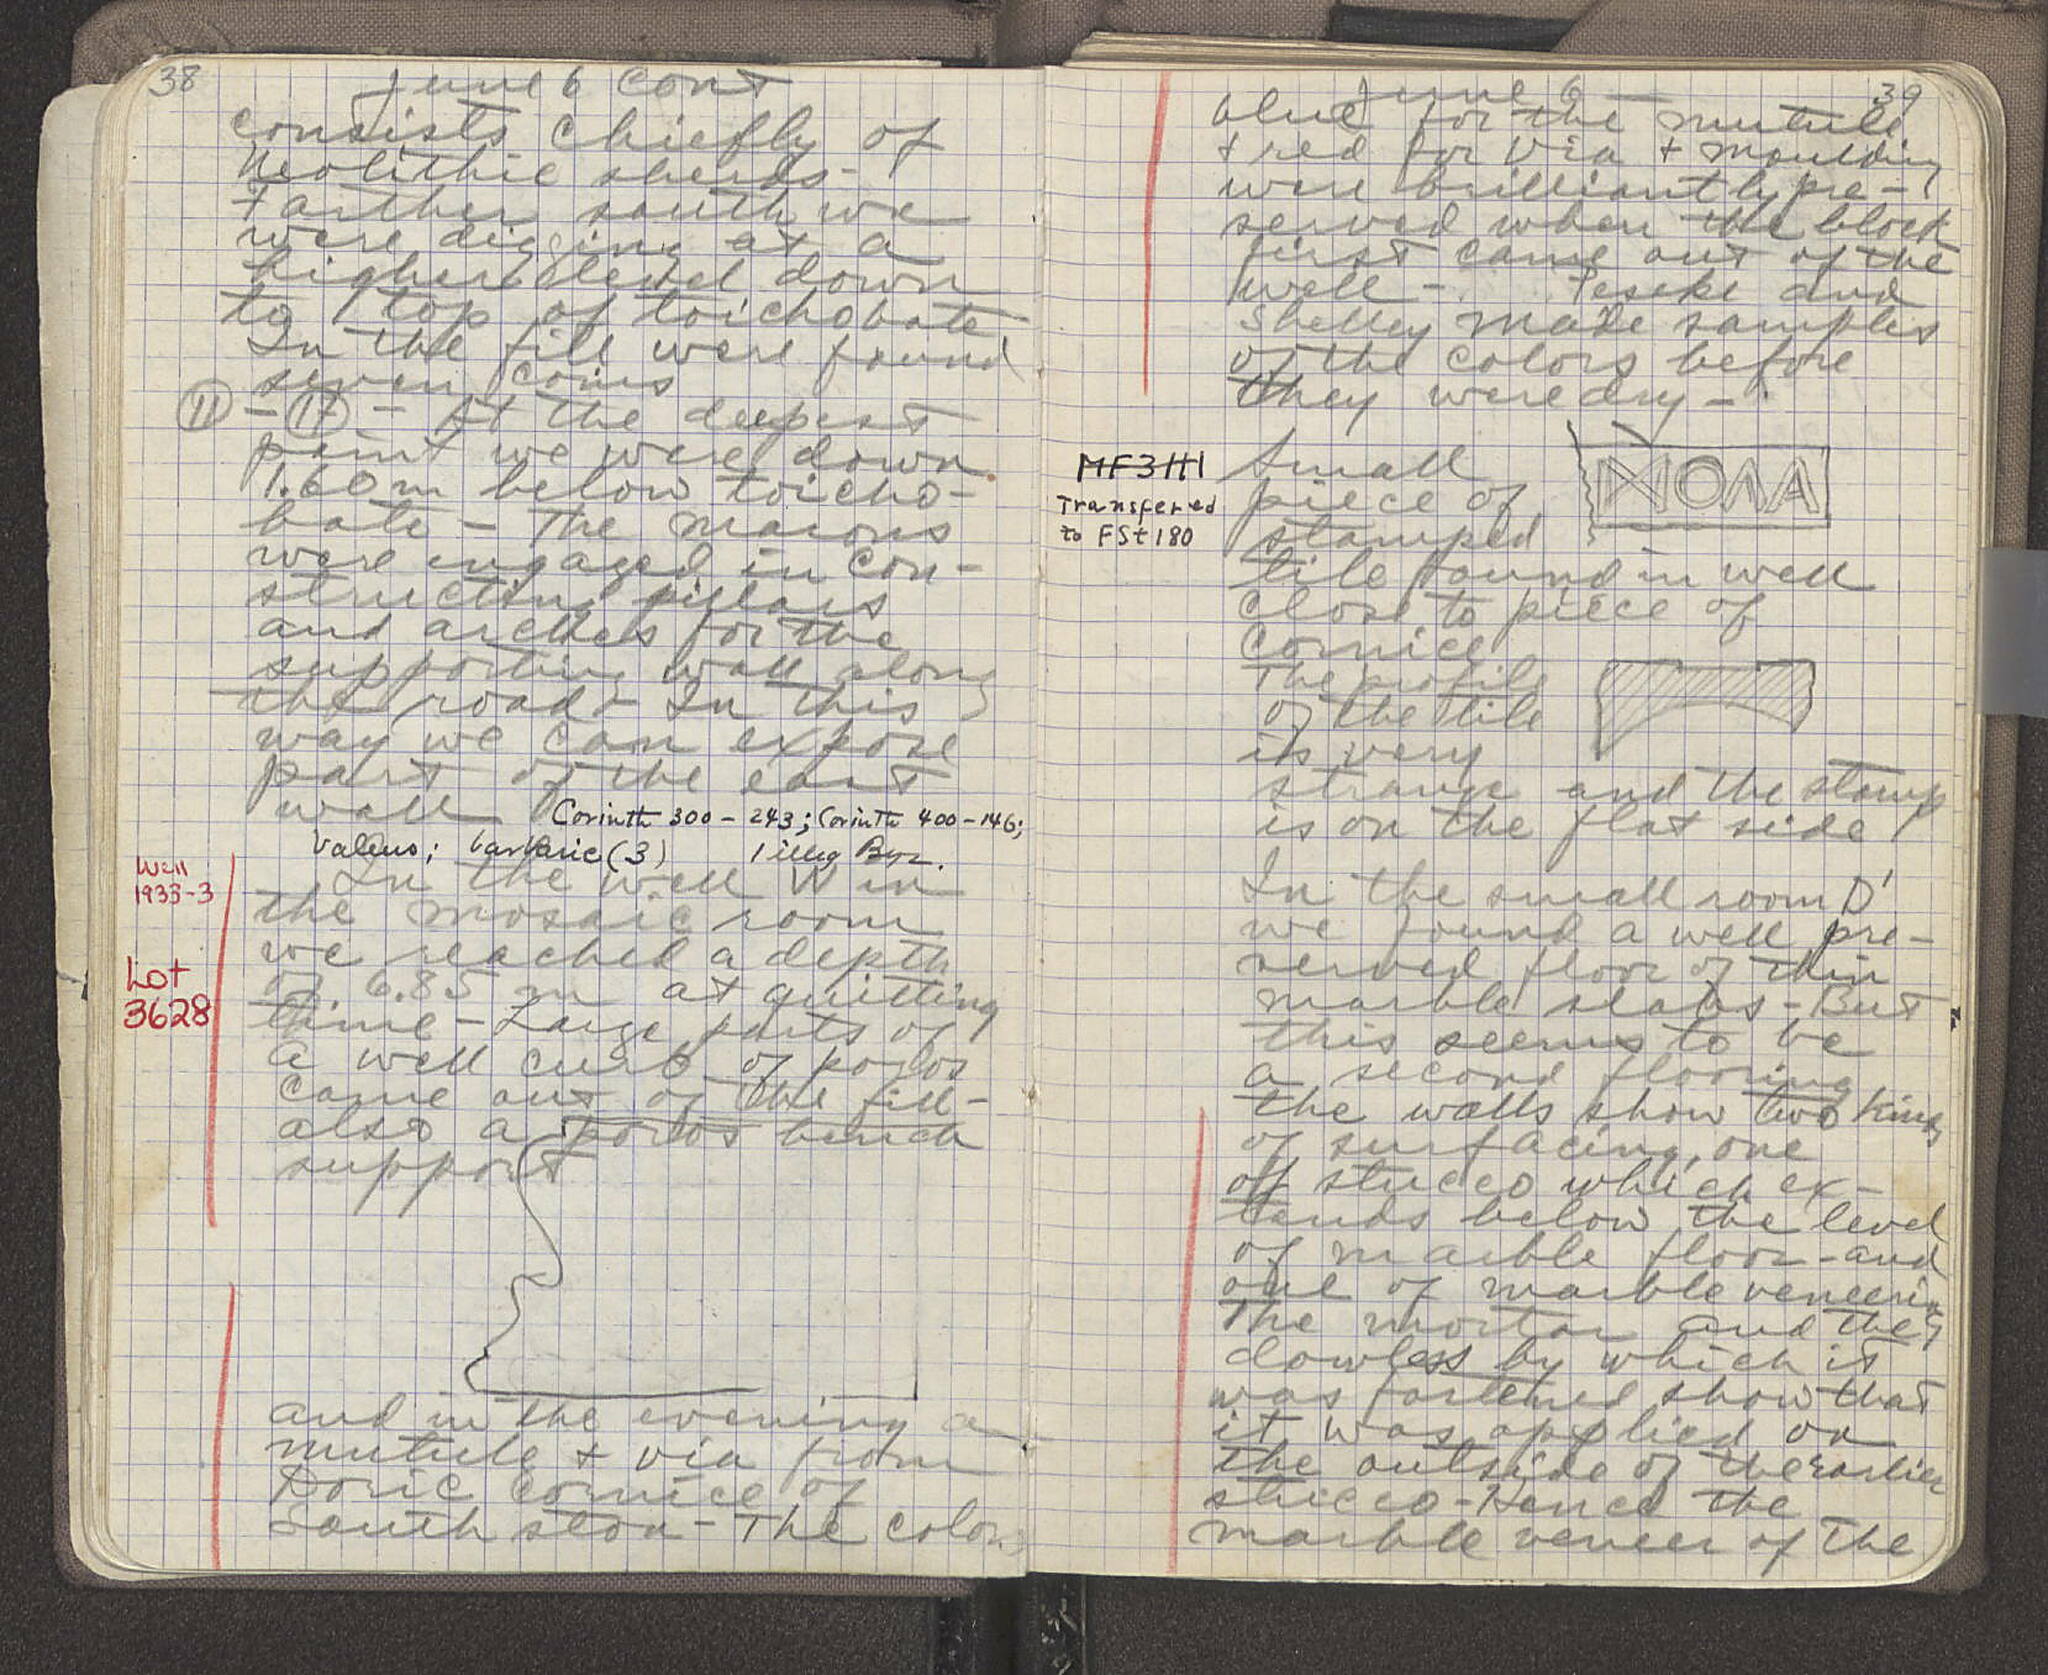 38
June 6 cont
consists chiefly of
Neolithic sherds-
Farther south we
were digging at a
higher level down
to top of toichobate
In the fill were found
seven coins
11 - 17 - At the deepest
point we were down
1.60 m below toicho-
bate - The masons
were engaged in con-
structing pillars
and arches for the
supporting wall along
the road - In this
way we can expose
part of the east
wall Corinth 300 - 243; Corinth 400-146;
Valens; barbaric (3) 1 illeg Byz.
Well
1933-3
In the well W in
the mosaic room
we reached a depth
Lot
3628
of 6.85 m at quitting
time - Large parts of
a well curb of poros
came out of the fill-
also a poros bench
support
and in the evening a
mutule + via from
Doric cornice of
South stoa - The colors
June 6 -
39
blue for the mutule
+ red for via + moulding
were brilliantly pre-
served when the block
first came out of the
well - and
Shelley made samples
of the colors before
they were dry -
MF3111
Transferred
to FSt 180
Small
piece of
stamped
tile found in well
close to piece of
cornice
The profile
of the tile
is very
strange and the stamp
is on the flat side
In the small room D'
we found a well pre-
served floor of thin
marble slabs - But
this seems to be
a second flooring
the walls show two kinds
of surfacing, one
of stucco which ex-
tends below the level
of marble floor - and
one of marble veneering
The mortar and the
dowless by which it
was fastened show that
it was applied on
the outside of the earlier
stucco - Hence the
marble veneer of the